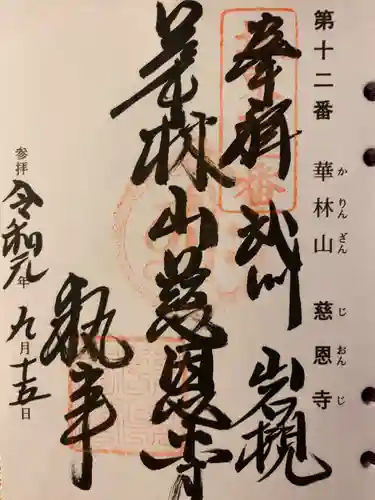 第十二番 華林山 慈恩寺
かりんざん じおんじ
奉拝 武州 岩槻
華林山慈恩寺
執事
参拝 令和元年 九月十五日